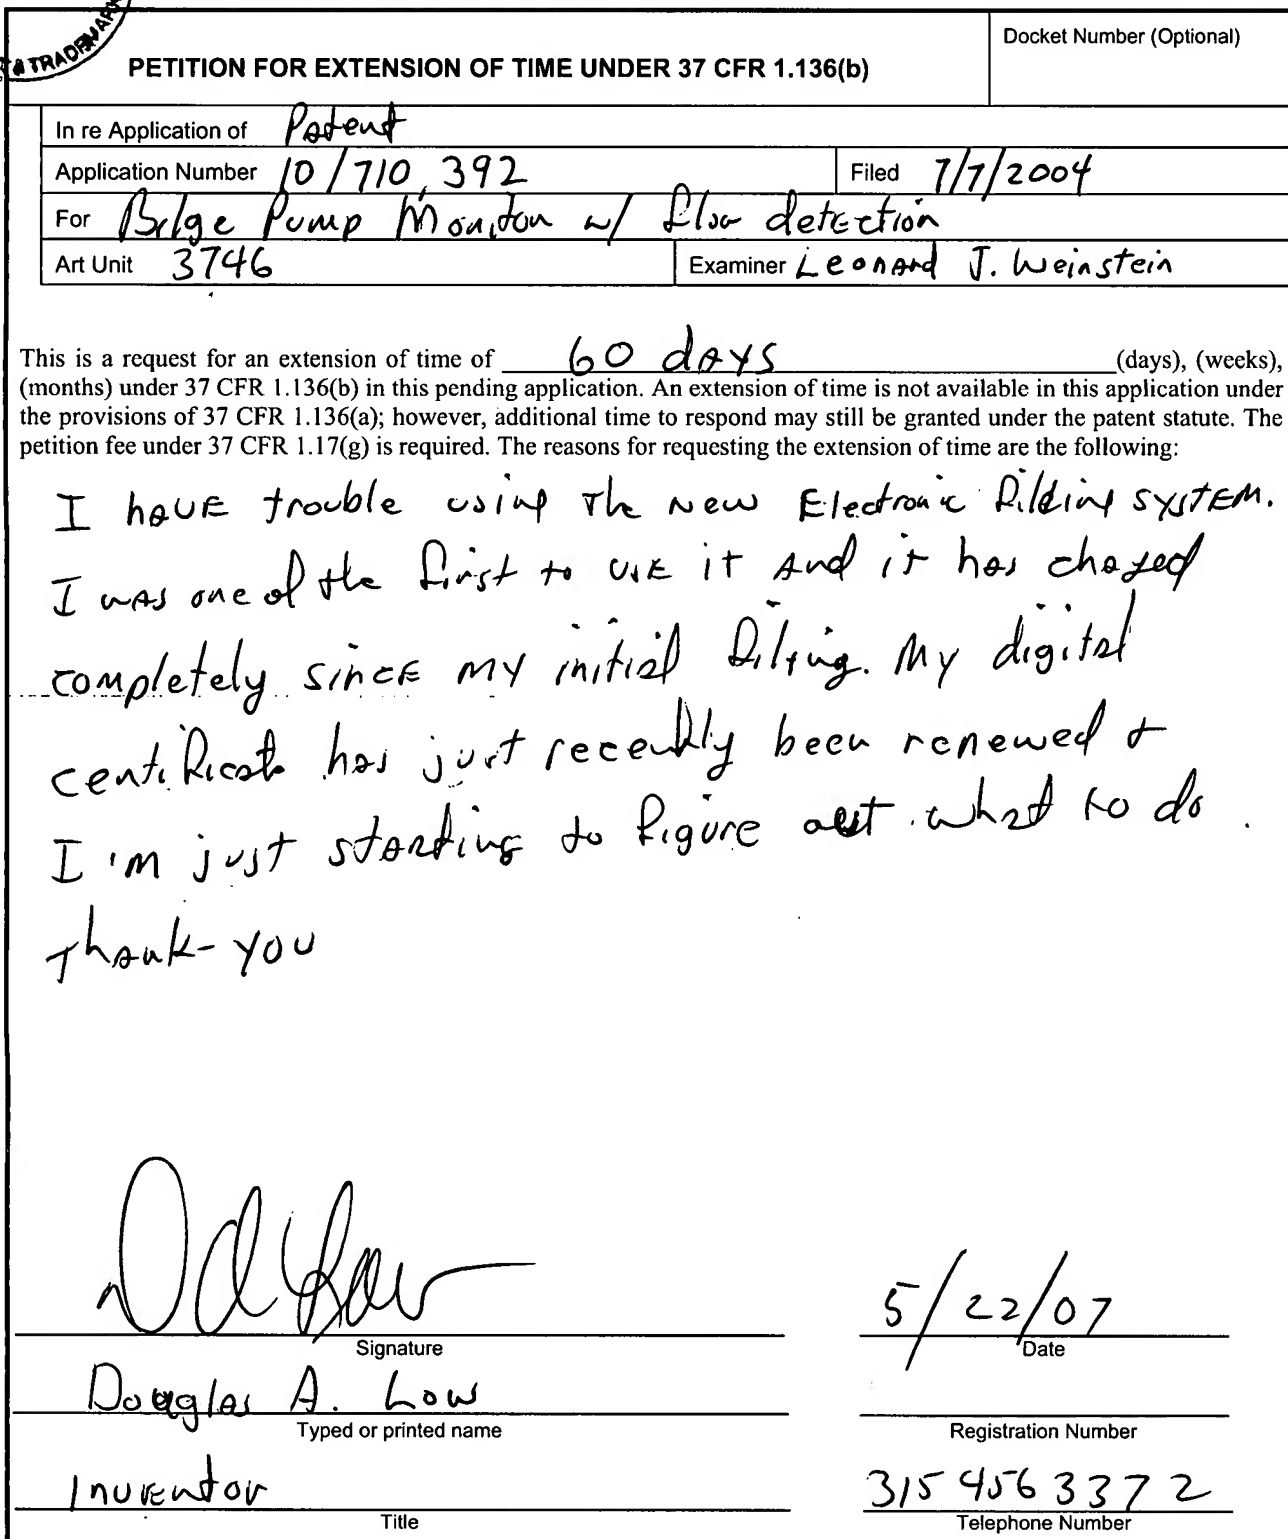 & TRADEMARK
Docket Number (Optional)
PETITION FOR EXTENSION OF TIME UNDER 37 CFR 1.136(b)
In re Application of Patent
Application Number 10/710,392 Filed 7/7/2004
For Bilge Pump Monitor w/ flow detection
Art Unit 3746 Examiner Leonard J. Weinstein
This is a request for an extension of time of 60 days (days), (weeks),
(months) under 37 CFR 1.136(b) in this pending application. An extension of time is not available in this application under
the provisions of 37 CFR 1.136(a); however, additional time to respond may still be granted under the patent statute. The
petition fee under 37 CFR 1.17(g) is required. The reasons for requesting the extension of time are the following:
I have trouble using the new Electronic filding system.
I was one of the first to use it and it has chaged
completely since my initial filing. My digital
certificate has just recently been renewed +
I'm just starting to figure out what to do.
Thank-you
Signature
5/22/07
Date
Douglas A. Low
Typed or printed name
Registration Number
Inventor
Title
315 456 3372
Telephone Number